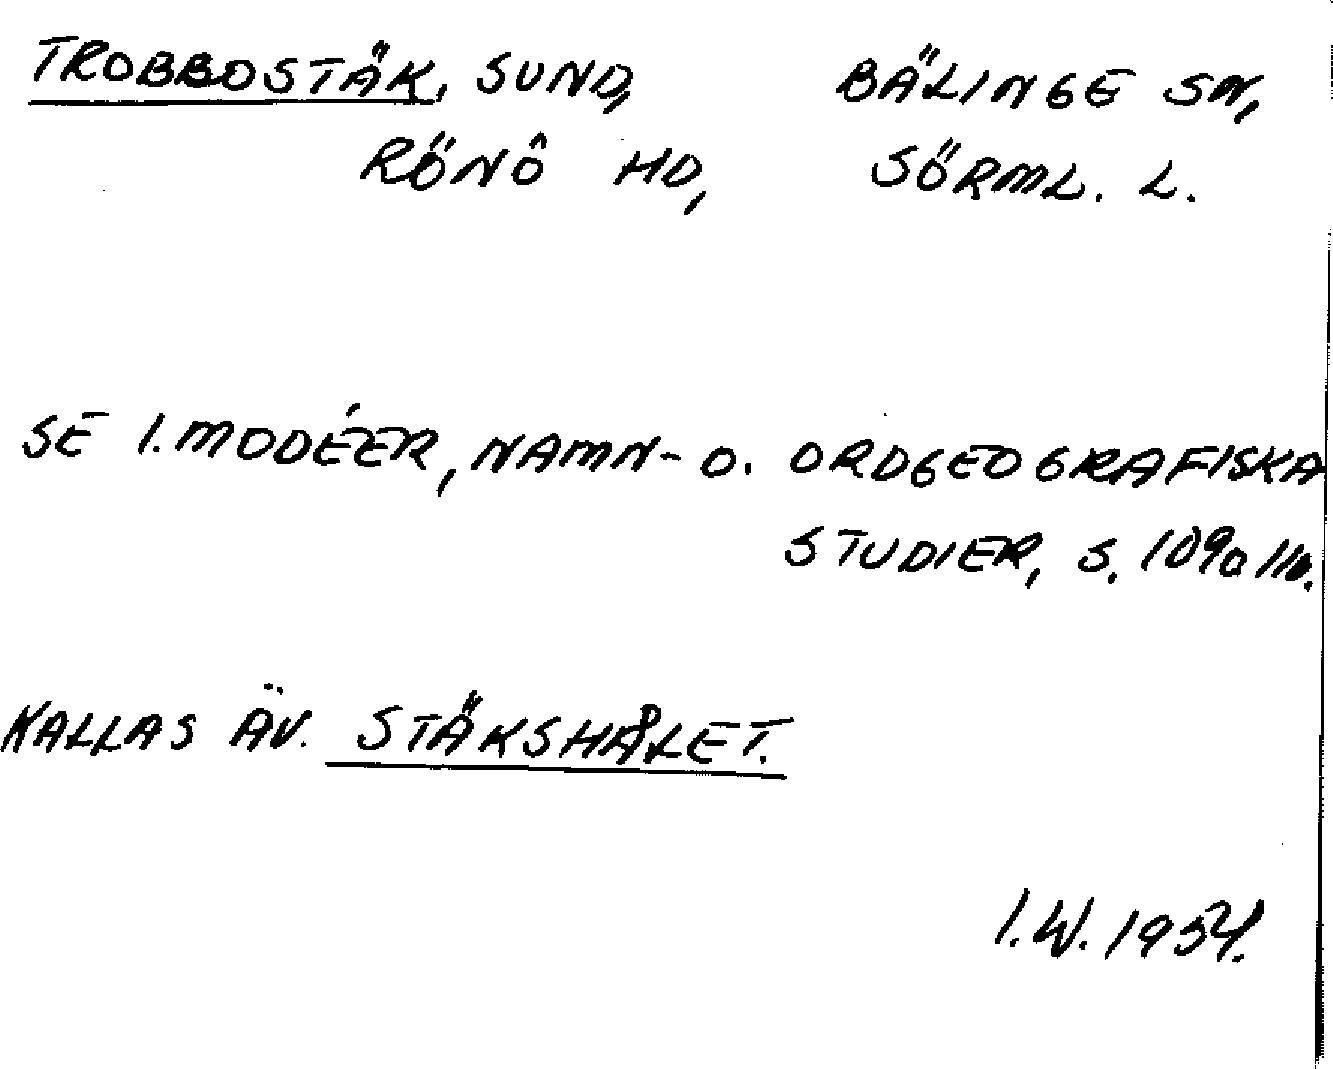 TROBBOSTÄK, SUND, BÄLINGE SN,
RÖNÖ HD, SÖRML. L.
SE I. MODÉER, NAMN- O. ORDGEOGRAFISKA
STUDIER, S. 109 o 110.
KALLAS ÄV. STÄKSHÅLET.
I.W. 1954.